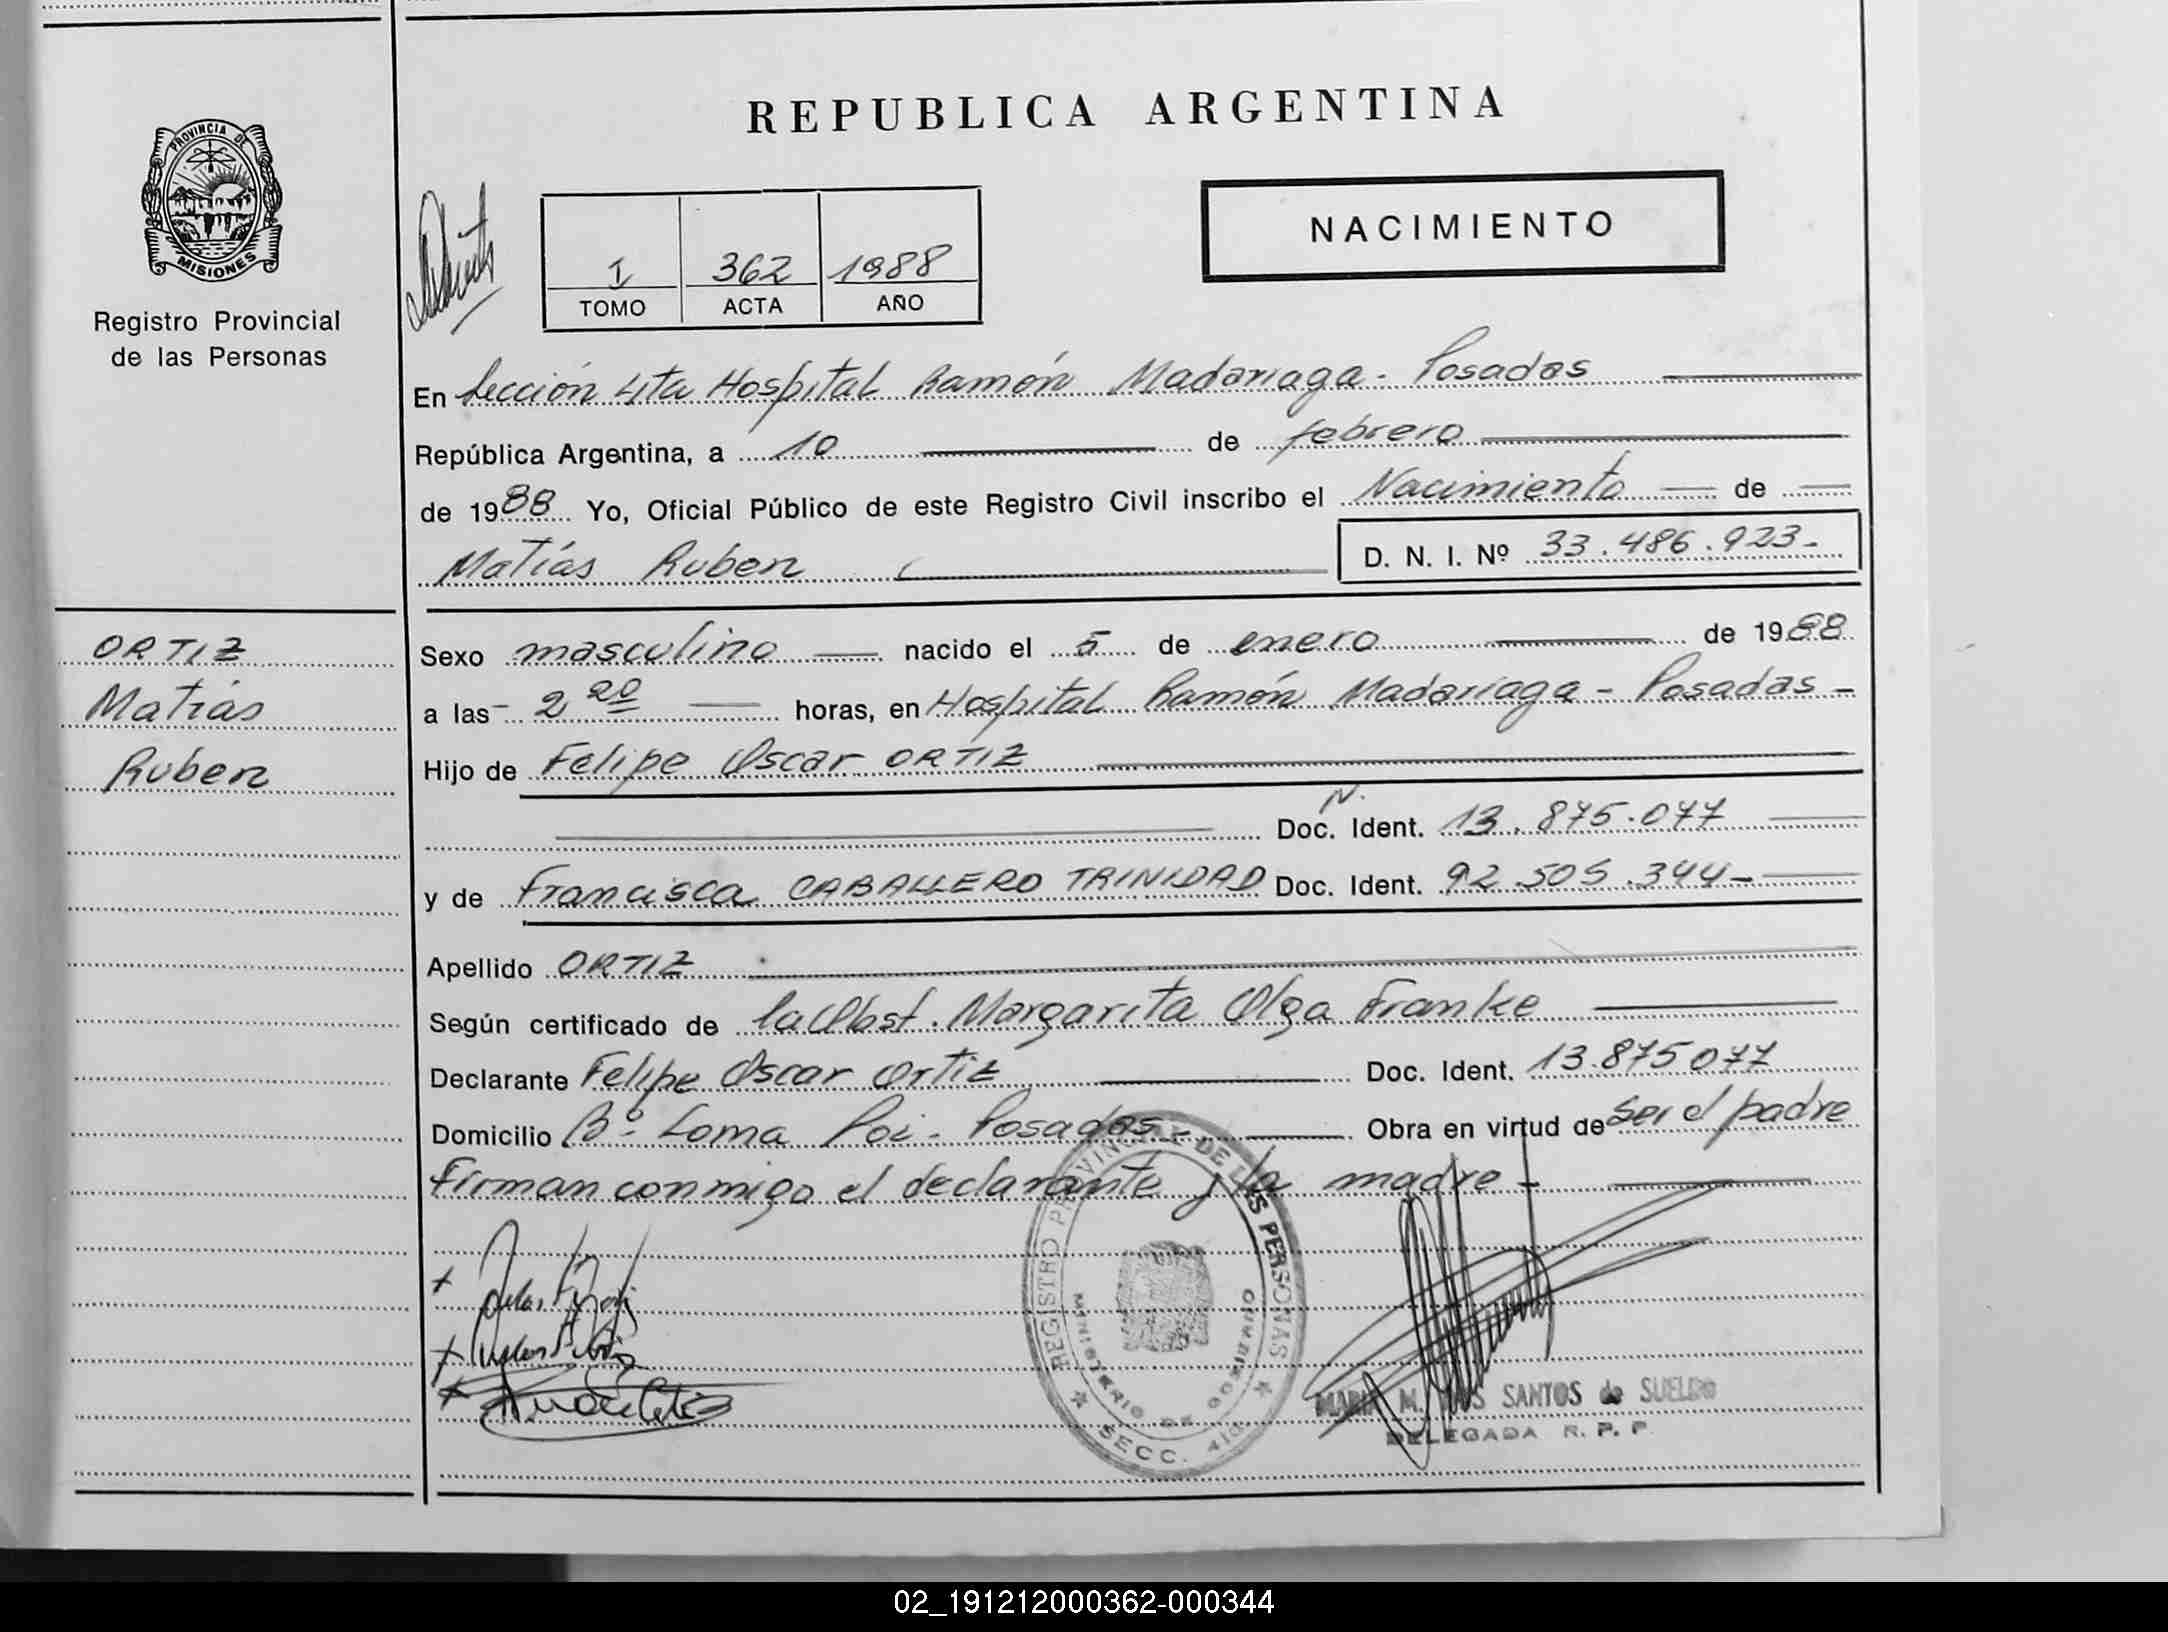 PROVINCIA DE
MISIONES
Registro Provincial
de las Personas
REPUBLICA ARGENTINA
NACIMIENTO
I 362 1988
TOMO ACTA AÑO
En Sección 4ta Hospital Ramón Madariaga - Posadas
República Argentina, a 10 de febrero
de 1988 Yo, Oficial Público de este Registro Civil inscribo el Nacimiento de
Matías Ruben D. N. I. Nº 33.486.923-
ORTIZ
Matías
Ruben
Sexo masculino nacido el 5 de enero de 1988
a las 2 20 horas, en Hospital Ramón Madariaga - Posadas -
Hijo de Felipe Oscar ORTIZ
N.
Doc. Ident. 13.875.077
y de Francisca CABALLERO TRINIDAD Doc. Ident. 92.505.344-
Apellido ORTIZ
Según certificado de la Obst. Margarita Olga Franke
Declarante Felipe Oscar Ortiz Doc. Ident. 13.875077
Domicilio Bº Loma Poi - Posadas - Obra en virtud de Ser el padre
Firman conmigo el declarante y la madre -
REGISTRO PROVINCIAL DE LAS PERSONAS
MINISTERIO DE GOBIERNO
SECC. 4ta
MARIA M. DOS SANTOS de SUELDO
DELEGADA R. P. P.
02_191212000362-000344